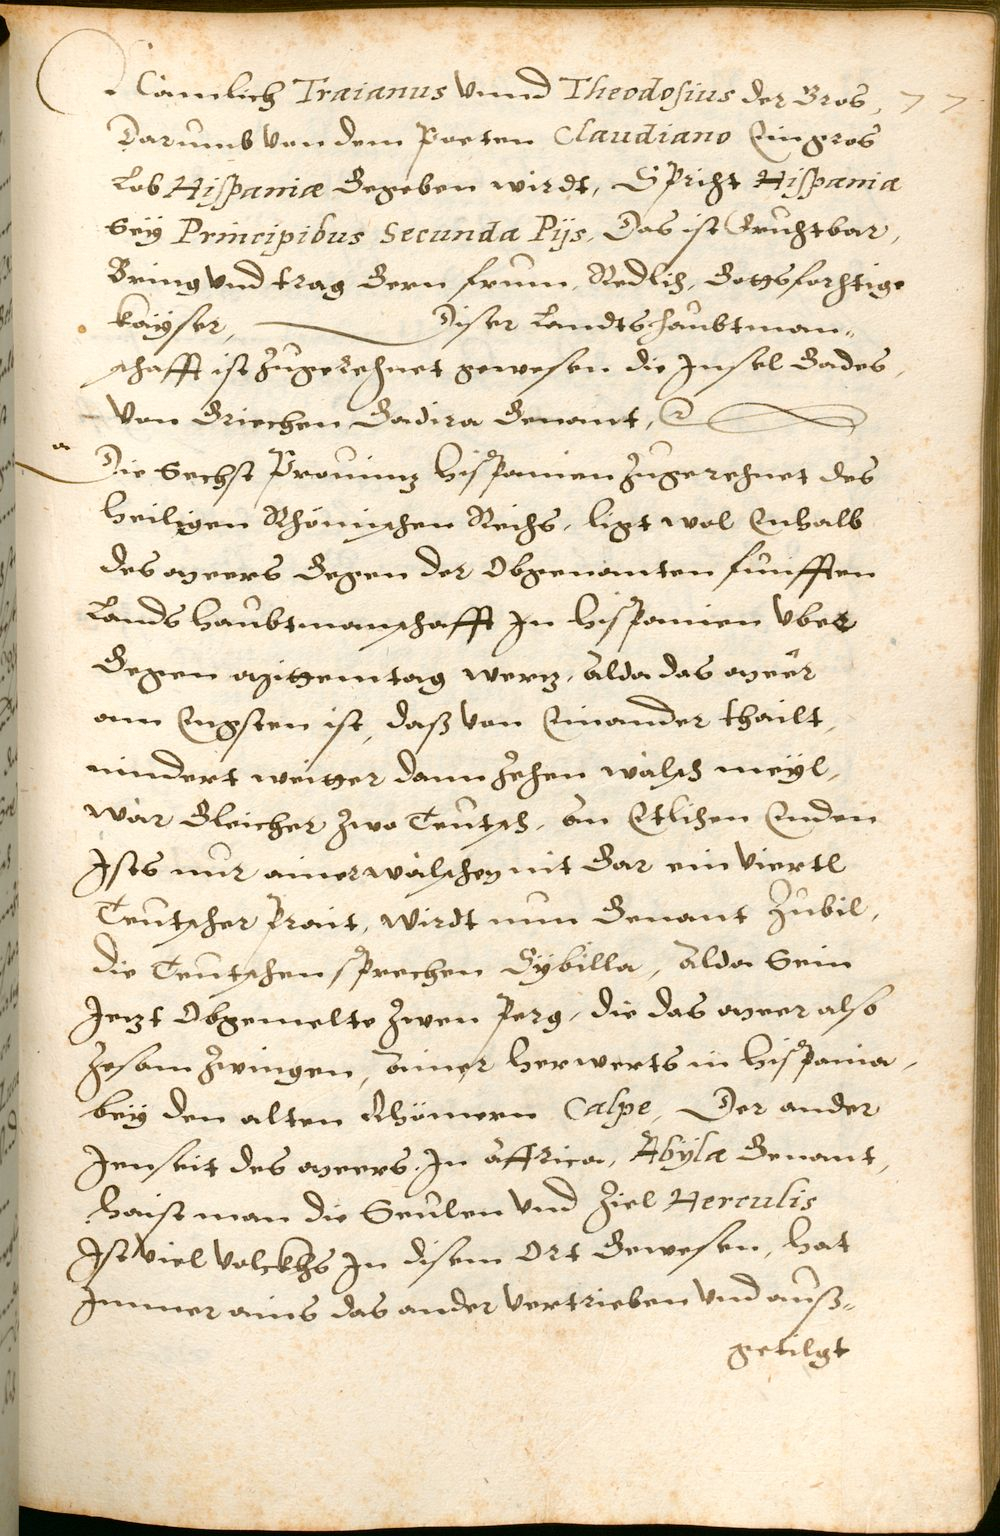 Nämlich Traianus vnnd Theodosius der Gros, 77
Darumb von dem Poeten Claudiano Ein gros
Lob Hispaniæ Gegeben wirdt, Spricht Hispania
Sey Principibus Secunda Pijs, Das ist Fruchtbar,
Bring vnd trag Gern frum, Redlich, Gottsforchtige
kayser, Diser Landtshaubtman„
schafft ist Zugerechnet gewesen die Insel Gades,
Von Griechen Gadira Genant,
Die Sechst Prouintz hispanien Zugerechnet des
heiligen Rhömischen Reichs, ligt wol Enhalb
des meers Gegen der Obgenanten funfften
Landshaubtmanschafft In hispanien vber
Gegen mittemtag wertz, alda das meer
am Engsten ist, daß von Einander thailt,
mindert weitter dann Zehen wälsch meyl,
wär Gleicher Zwo Teutsch, an Etlichen Enden
Ists nur ainer wälschen mit Gar ein Viertl
Teutscher Prait, Wirdt nun Genant Zubil,
die Teutschen sprechen Sybilla, Alda Sein
Jetzt Obgemelte Zwen Perg, die das meer also
Zesam Zwingen, ainer herwerts in hispania,
bey den alten Rhömern Calpe, Der ander
Jenseit des meers In Affrica, Abylæ Genant,
haist man die Seulen vnd Ziel Herculis
Ist viel Volckhs In disem Ort Gewesen, hat
Immer ains das ander vertrieben vnd auß„
getilgt